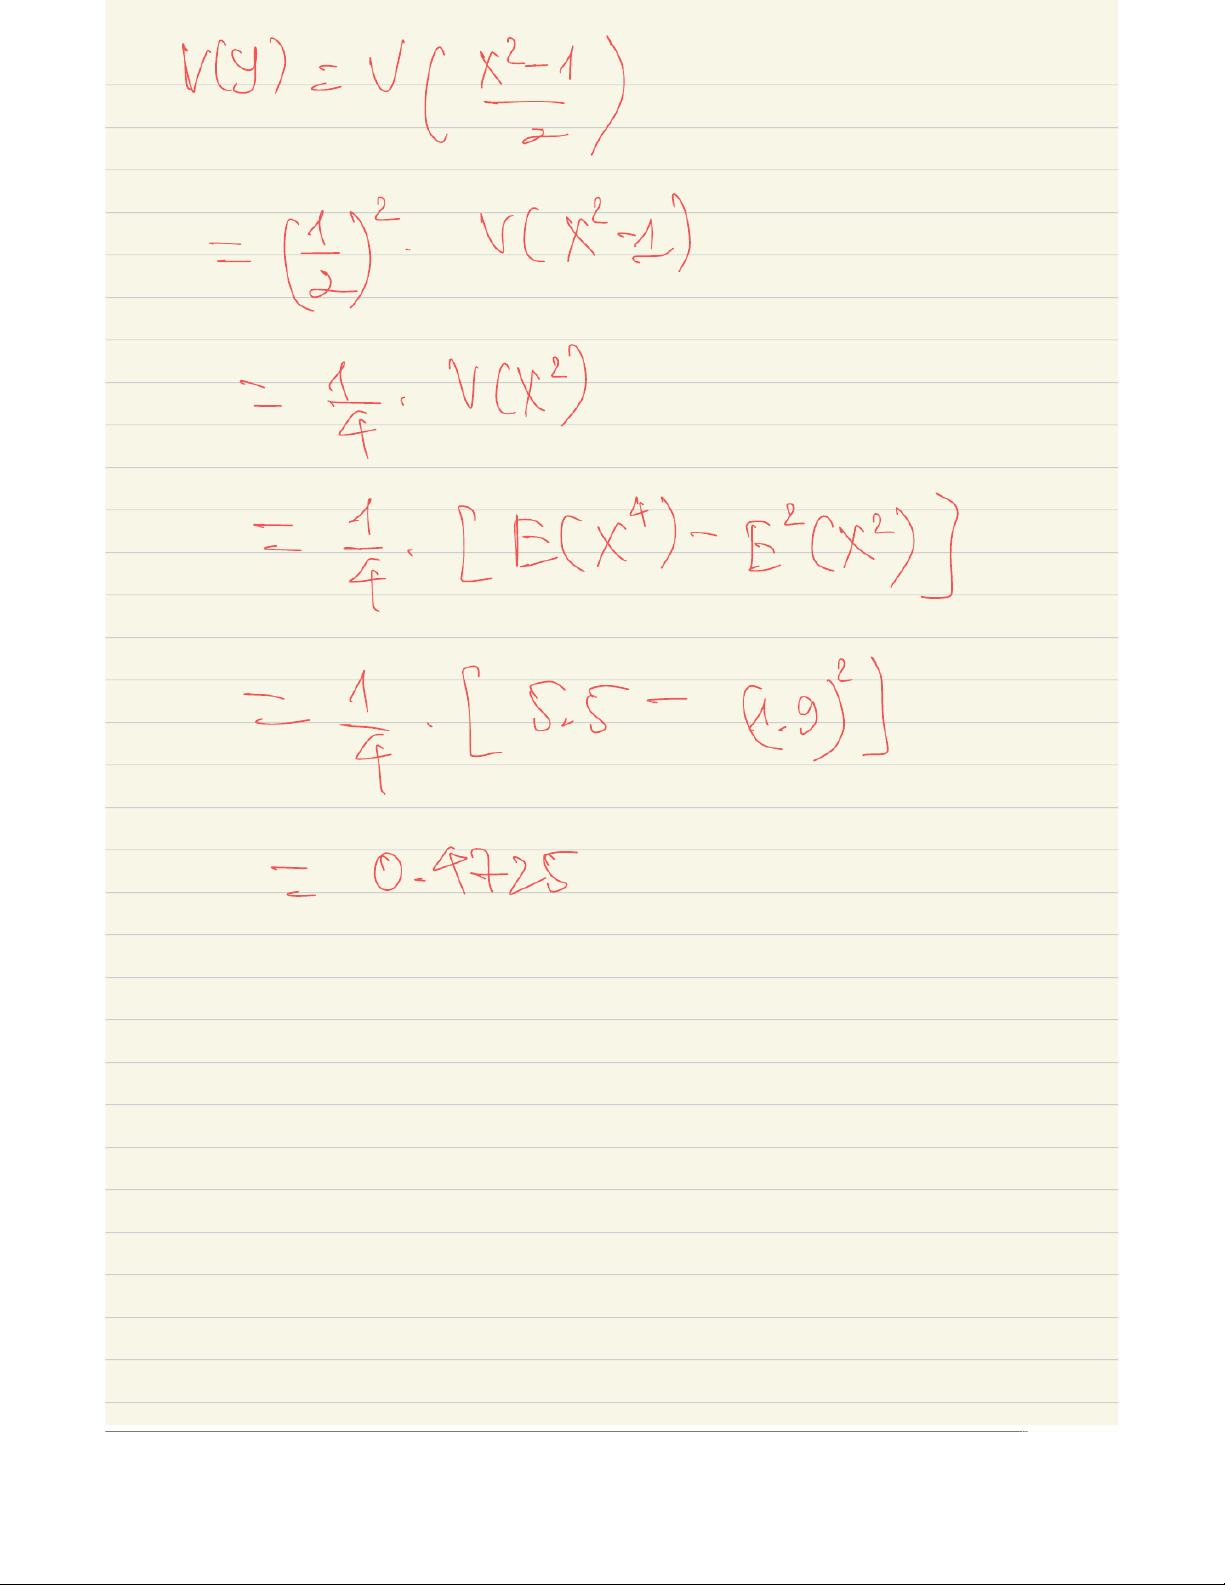 V(y) = V( (x²-1)/2 )
= (1/2)² · V(x²-1)
= 1/4 · V(x²)
= 1/4 · [E(x⁴) - E²(x²)]
= 1/4 · [5.5 - (1.9)²]
= 0.4725